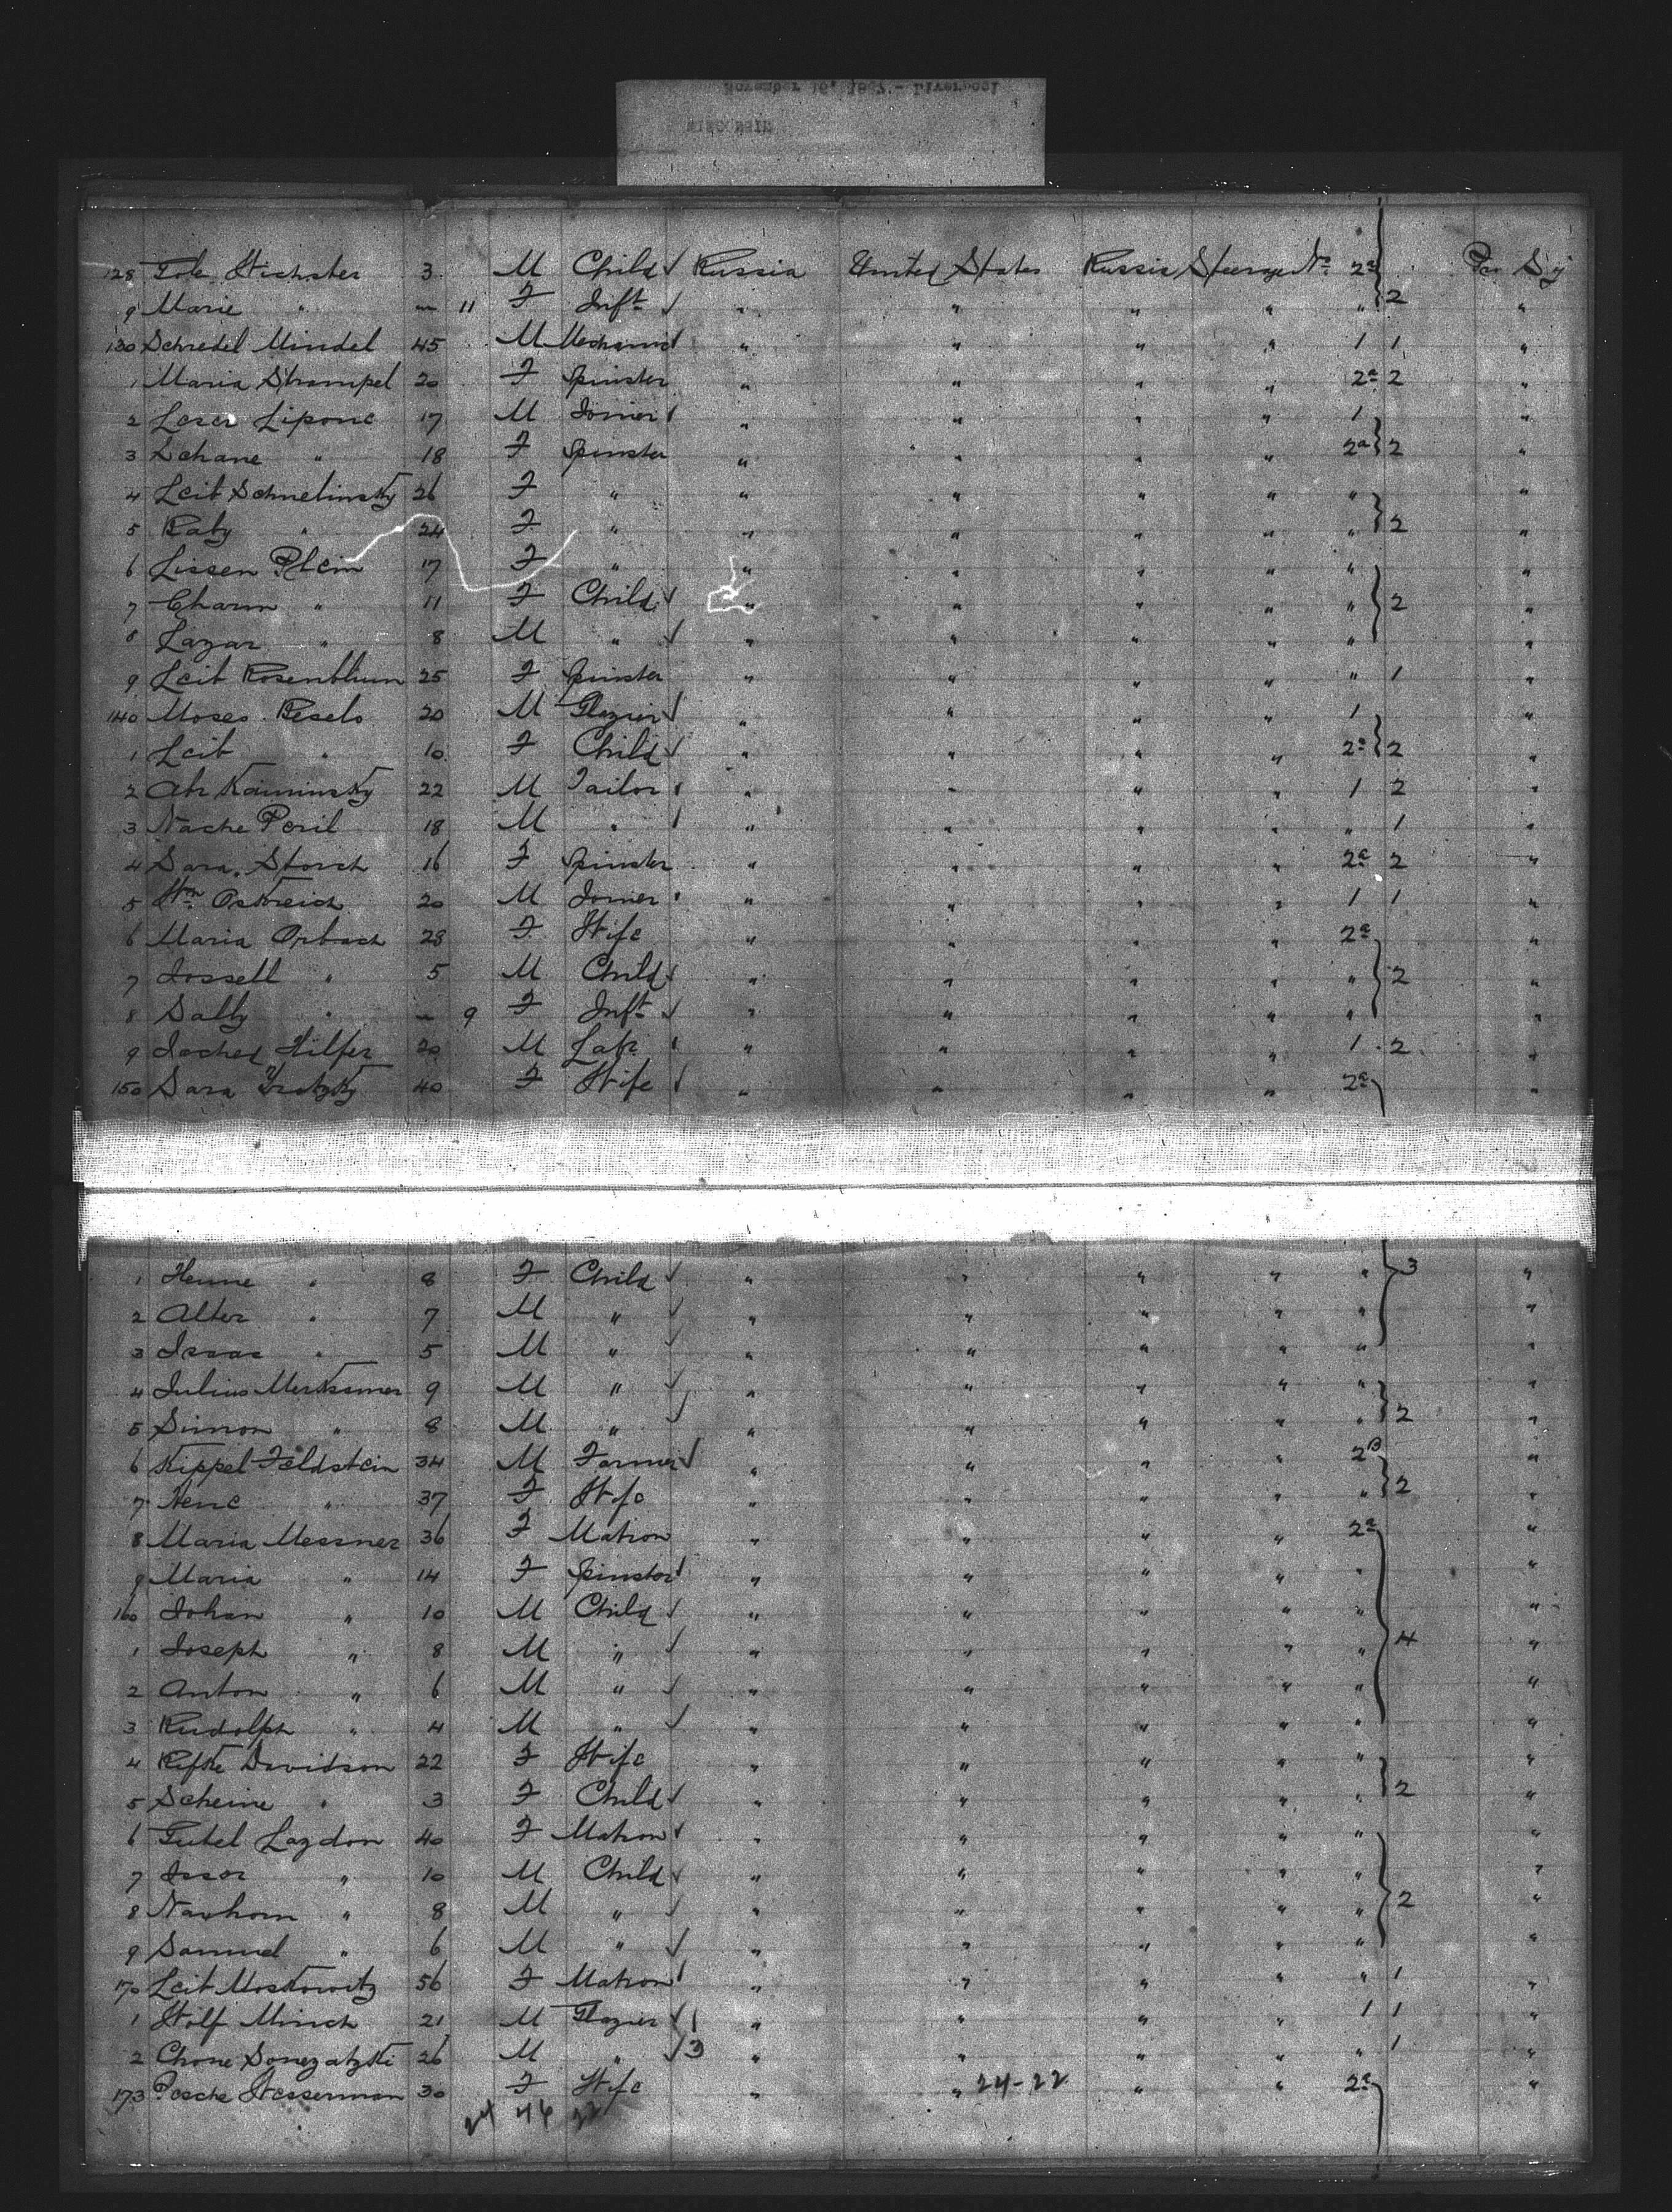 November 16, 1887. - Liverpool
WISCONSIN
128 Tole 3 M Child ✓ Russia United States Russia Steerage No 2a Pro Sj
9 Marie " — 11 F Inft ✓ " " " " " 2 "
130 Schredel Mindel 45 M Mechanic " " " " 1 1 "
1 Maria Strampel 20 F Spinster " " " " 2a 2 "
2 Leser Lipone 17 M Joiner " " " " 1 "
3 Lchane " 18 F Spinster " " " " 2a 2 "
4 Leib Schmelinsky 26 F " " " " " " "
5 Raby " 24 F " " " " " " 2 "
6 Lissen Plein 17 F " " " " " " "
7 Charm " 11 F Child ✓ " " " " " 2 "
8 Lazar " 8 M " ✓ " " " " " "
9 Leib Rosenblum 25 F Spinster " " " " " 1 "
140 Moses Resels 20 M Glazier ✓ " " " " 1 "
1 Leib " 10 F Child ✓ " " " " 2a 2 "
2 Abr Kaminsky 22 M Tailor " " " " 1 2 "
3 Nache Peril 18 M " " " " " " 1 "
4 Sara Storch 16 F Spinster " " " " 2a 2 "
5 Hn Ostreich 20 M Joiner " " " " 1 1 "
6 Maria Orbach 28 F Wife " " " " 2a "
7 Jossell " 5 M Child ✓ " " " " " 2 "
8 Sally " — 9 F Inft ✓ " " " " " "
9 Hilfer 20 M Labr " " " " 1 2 "
150 Sara Trotzky 40 F Wife " " " " 2a "
1 Henne " 8 F Child ✓ " " " " " 3 "
2 Alter " 7 M " ✓ " " " " " "
3 Isaac " 5 M " ✓ " " " " " "
4 Julius Merksamer 9 M " ✓ " " " " " "
5 Simon " 8 M " ✓ " " " " " 2 "
6 Kippel Feldstein 34 M Farmer ✓ " " " " 2B "
7 Nene " 37 F Wife " " " " " 2 "
8 Maria Messner 36 F Matron " " " " 2a "
9 Maria " 14 F Spinster " " " " " "
160 Johan " 10 M Child ✓ " " " " " "
1 Joseph " 8 M " ✓ " " " " " 4 "
2 Anton " 6 M " ✓ " " " " " "
3 Rudolph " 4 M " ✓ " " " " " "
4 Rifke Davidson 22 F Wife " " " " " "
5 Scheine " 3 F Child ✓ " " " " " 2 "
6 Gutel Lazdon 40 F Matron " " " " " "
7 Issor " 10 M Child ✓ " " " " " "
8 Nauhom " 8 M " ✓ " " " " " 2 "
9 Samuel " 6 M " ✓ " " " " " "
170 Leib Moskowitz 56 F Matron " " " " " 1 "
1 Wolf Minsch 21 M Glazier ✓ 1 " " " " 1 1 "
2 Chone 26 M " ✓ 3 " " " " " 1 "
173 Pesche Wasserman 30 F Wife " " 24-22 " " 2a "
24 46 22